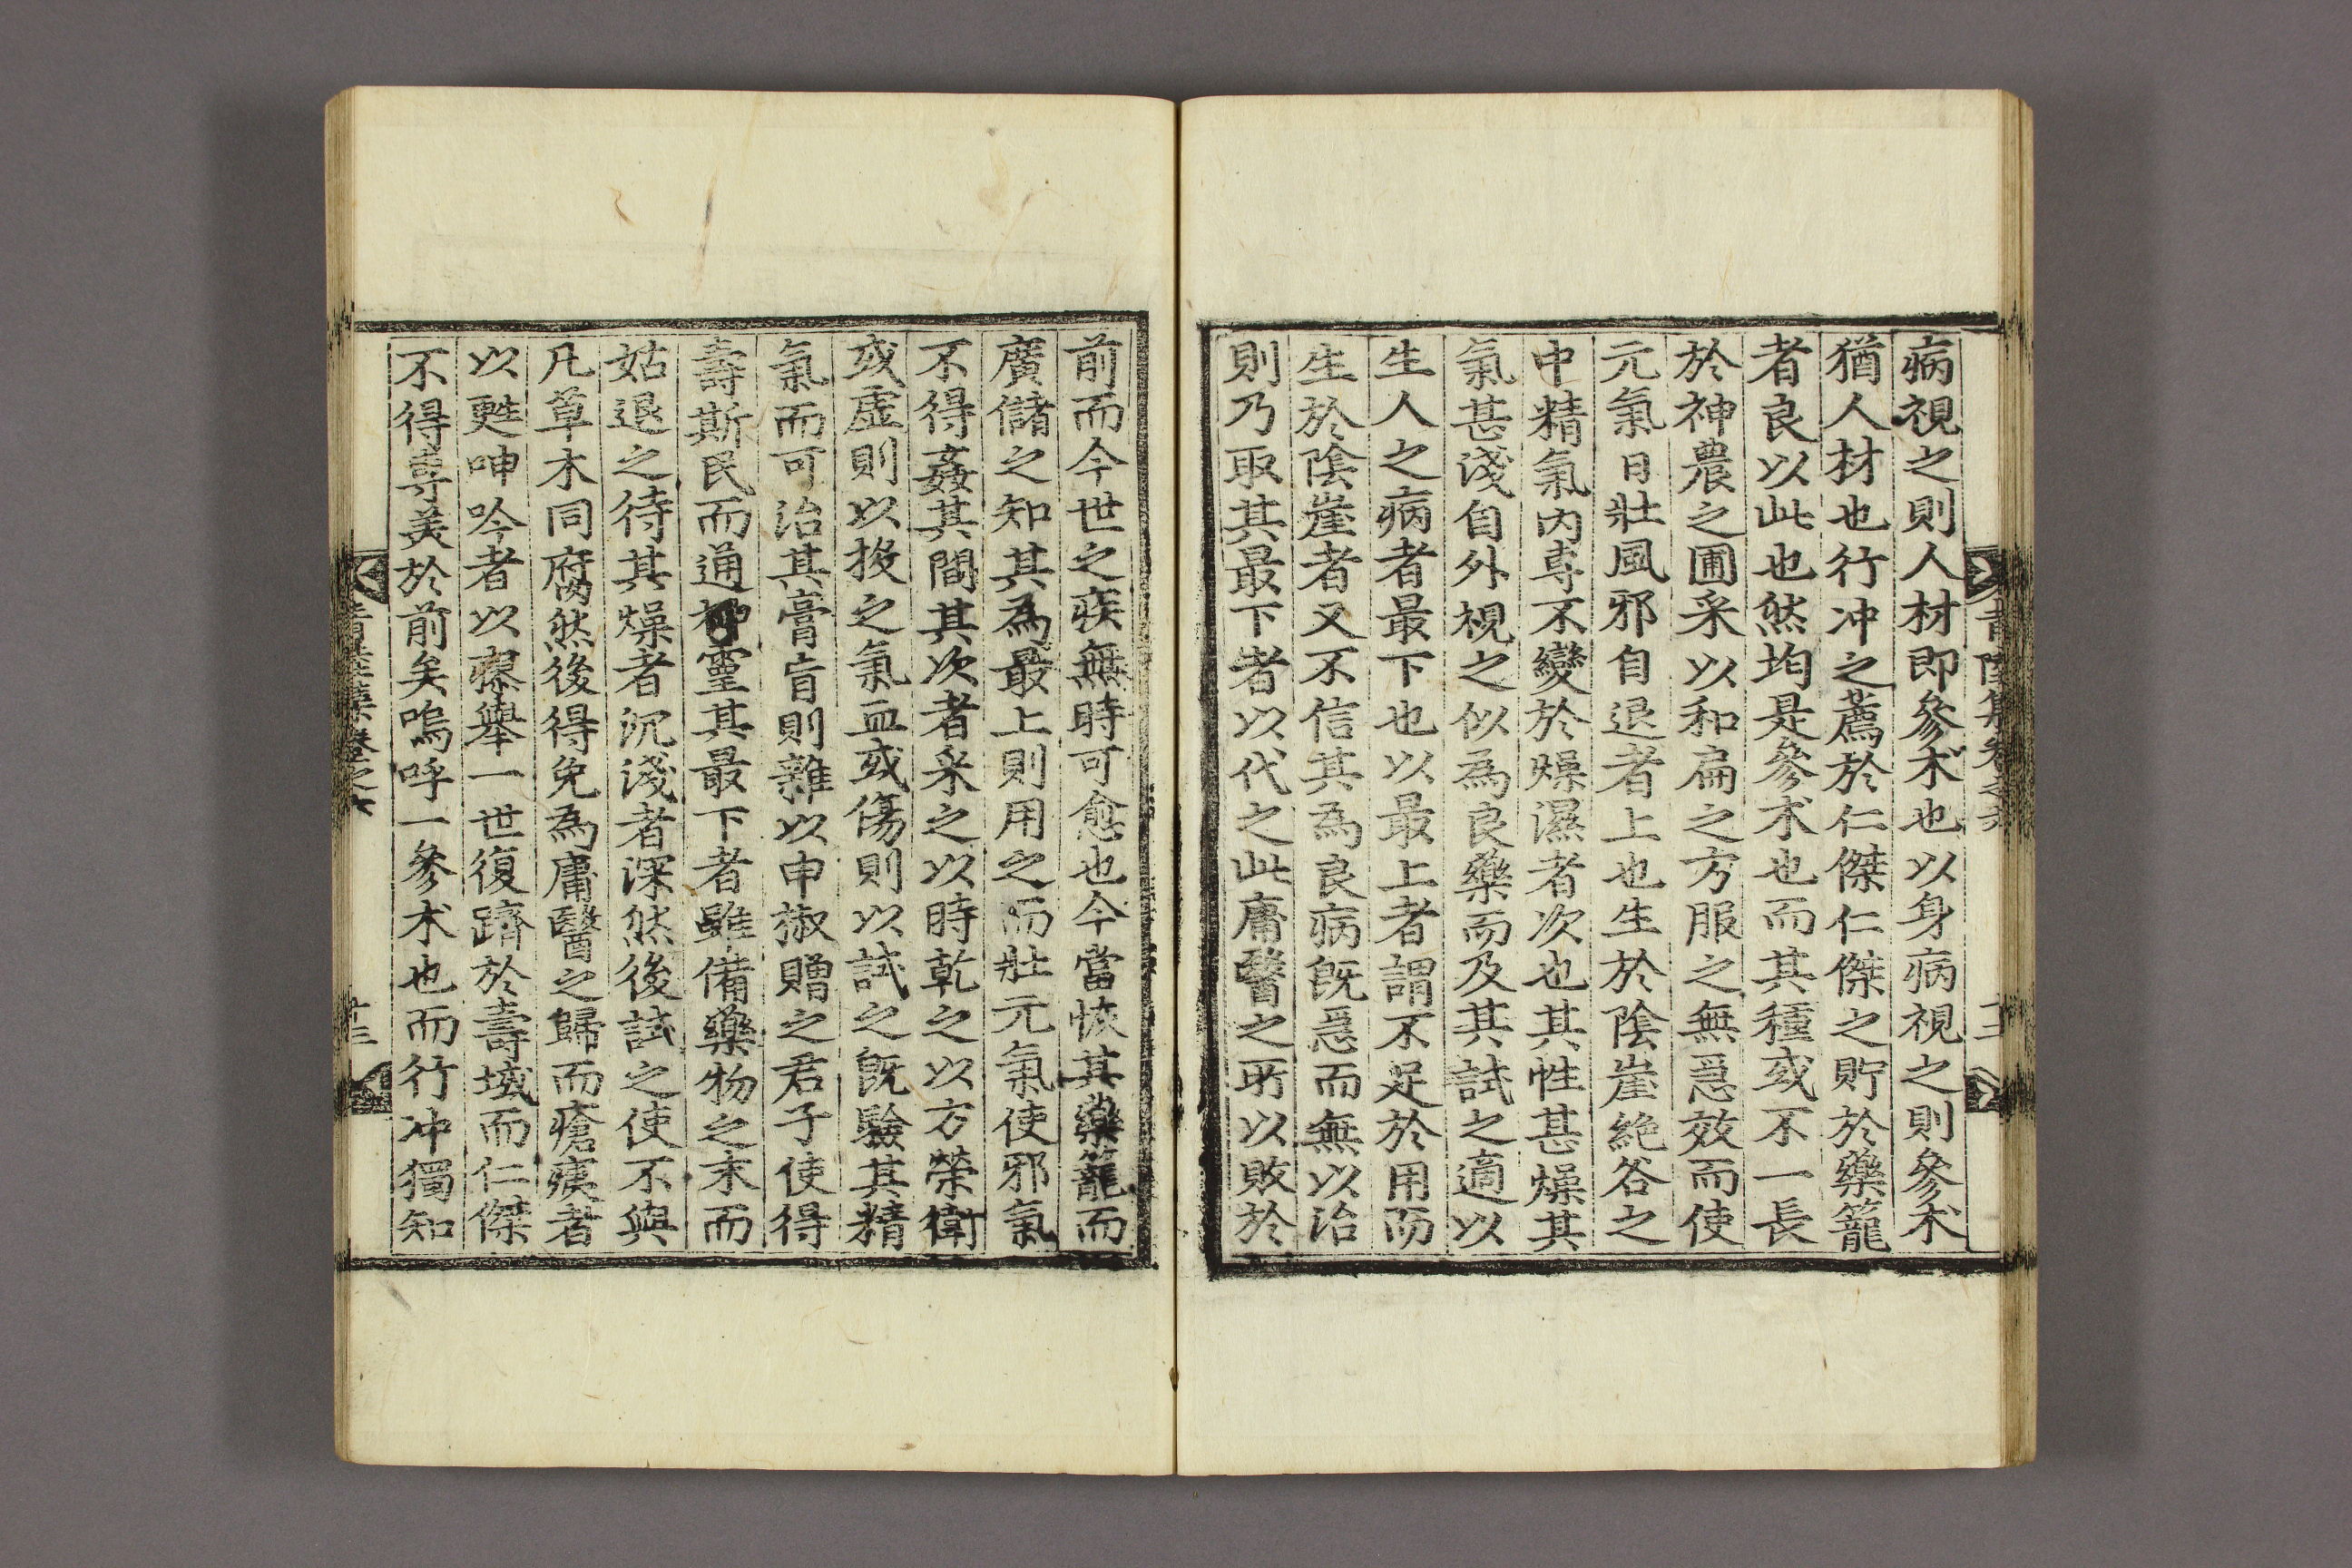 病視之則人材即參朮也以身病視之則參朮
猶人材也行冲之薦於仁傑仁傑之貯於藥籠
者良以此也然均是參朮也而其種或不一長
於神農之圃采以和扁之方服之無㥯效而使
元氣日壯風邪自退者上也生於陰崖絶谷之
中精氣內專不變於燥濕者次也其性甚燥其
氣甚淺自外視之似爲良藥而及其試之適以
生人之病者最下也以最上者謂不足於用而
生於陰崖者又不信其爲良病旣㥯而無以治
則乃取其最下者以代之此庸醫之所以敗於
前而今世之疾無時可愈也今當恢其藥籠而
廣儲之知其爲最上則用之而壯元氣使邪氣
不得姦其間其次者采之以時乾之以方榮衛
或虛則以投之氣血或傷則以試之旣驗其精
氣而可治其膏肓則雜以申椒贈之君子使得
壽斯民而通神靈其最下者雖備藥物之末而
姑退之待其燥者沉淺者深然後試之使不與
凡草木同腐然後得免爲庸醫之歸而瘡痍者
以甦呻吟者以瘳擧一世復躋於壽域而仁傑
不得專美於前矣嗚呼一參朮也而行冲獨知
卷之六
十三